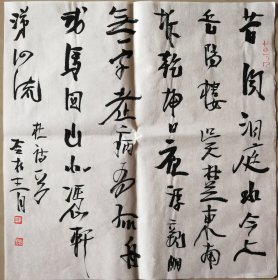 昔聞洞庭水今上
岳陽樓吳楚東南
坼乾坤日夜浮親朋
無一字老病有孤舟
戎馬關山北憑軒
涕泗流
杜詩
十一月